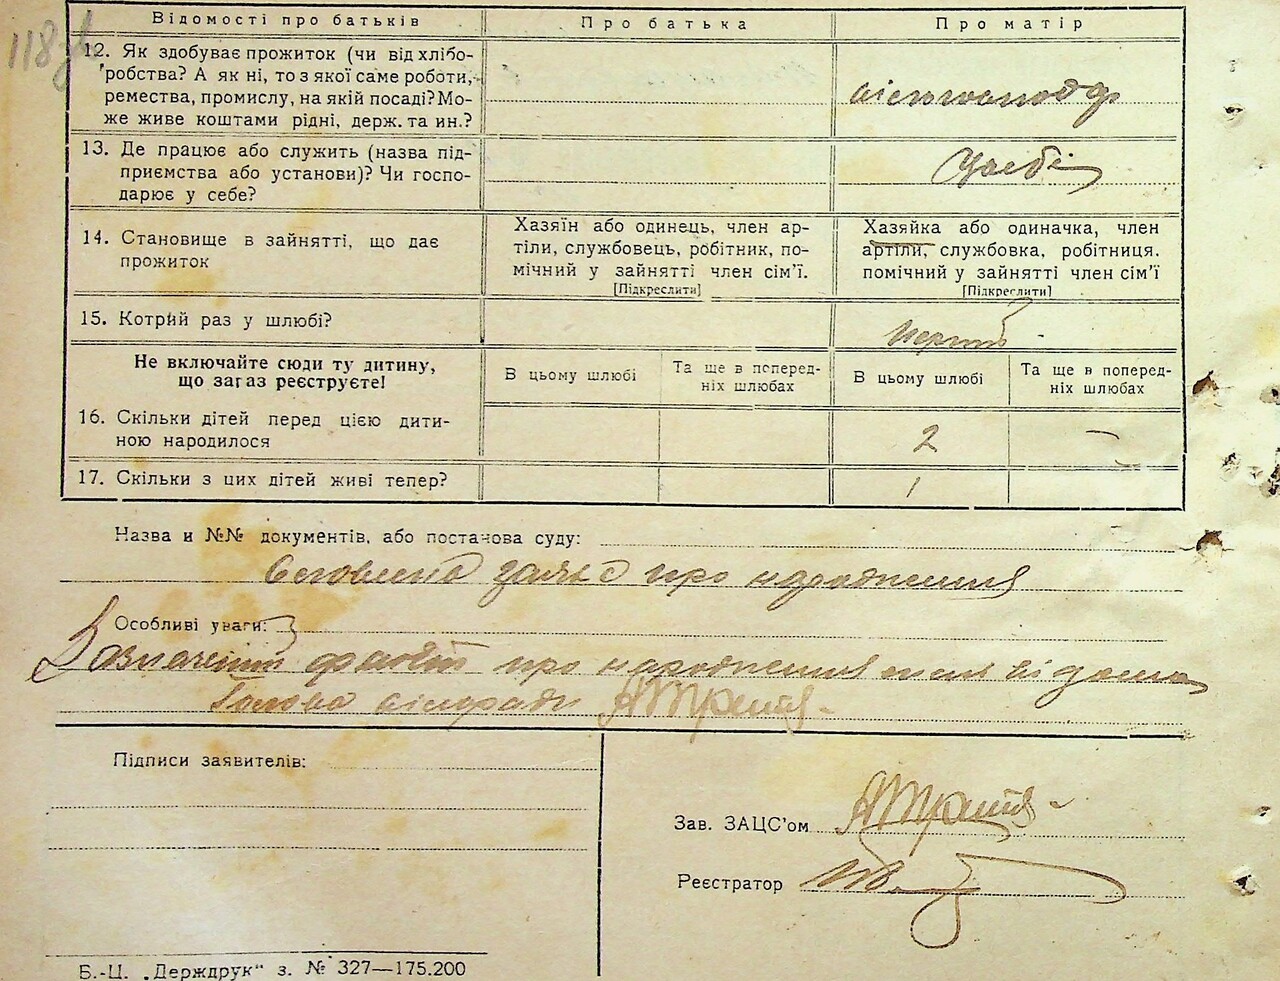 118зв
Відомості про батьків
Про батька
Про матір
12. Як здобуває прожиток (чи від хлібо-
робства? А як ні, то з якої саме роботи,
ремества, промислу, на якій посаді? Мо-
же живе коштами рідні, держ. та ин.?
13. Де працює або служить (назва під-
приємства або установи)? Чи госпо-
дарює у себе?
у себе
14. Становище в зайнятті, що дає
прожиток
Хазяїн або одинець, член ар-
тіли, службовець, робітник, по-
мічний у зайнятті член сім'ї.
[Підкреслити]
Хазяйка або одиначка, член
артіли, службовка, робітниця.
помічний у зайнятті член сім'ї
[Підкреслити]
15. Котрий раз у шлюбі?
перший
Не включайте сюди ту дитину,
що загаз реєструєте!
В цьому шлюбі
Та ще в поперед-
ніх шлюбах
В цьому шлюбі
Та ще в поперед-
ніх шлюбах
16. Скільки дітей перед цією дити-
ною народилося
2
–
17. Скільки з цих дітей живі тепер?
1
Назва и №№ документів, або постанова суду:
заява про народження
Особливі уваги:
Зазначений про народження
Голова сільради
Підписи заявителів:
Зав. ЗАЦС'ом
Реєстратор
Б.-Ц. „Держдрук“ з. № 327—175.200